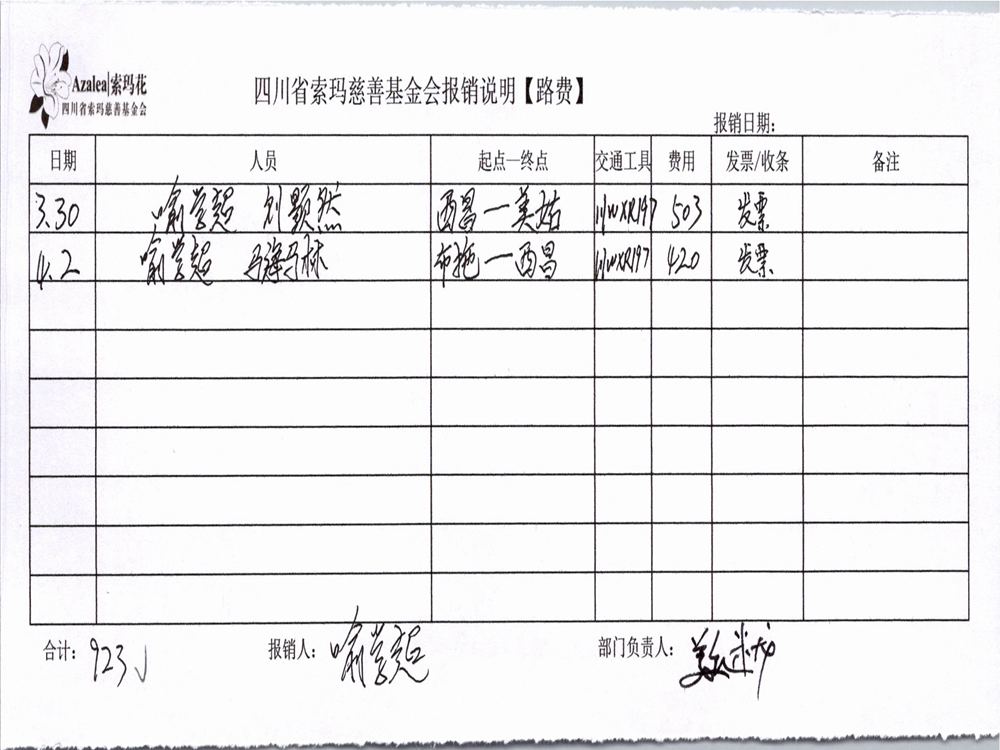 Azalea|索玛花
四川省索玛慈善基金会
四川省索玛慈善基金会报销说明【路费】
报销日期：
日期 人员 起点—终点 交通工具 费用 发票/收条 备注
3.30 喻学超 刘颢然 西昌—美姑 川WXR197 503 发票
4.2 喻学超 布拖—西昌 川WXR197 420 发票
合计：923 报销人：喻学超 部门负责人：